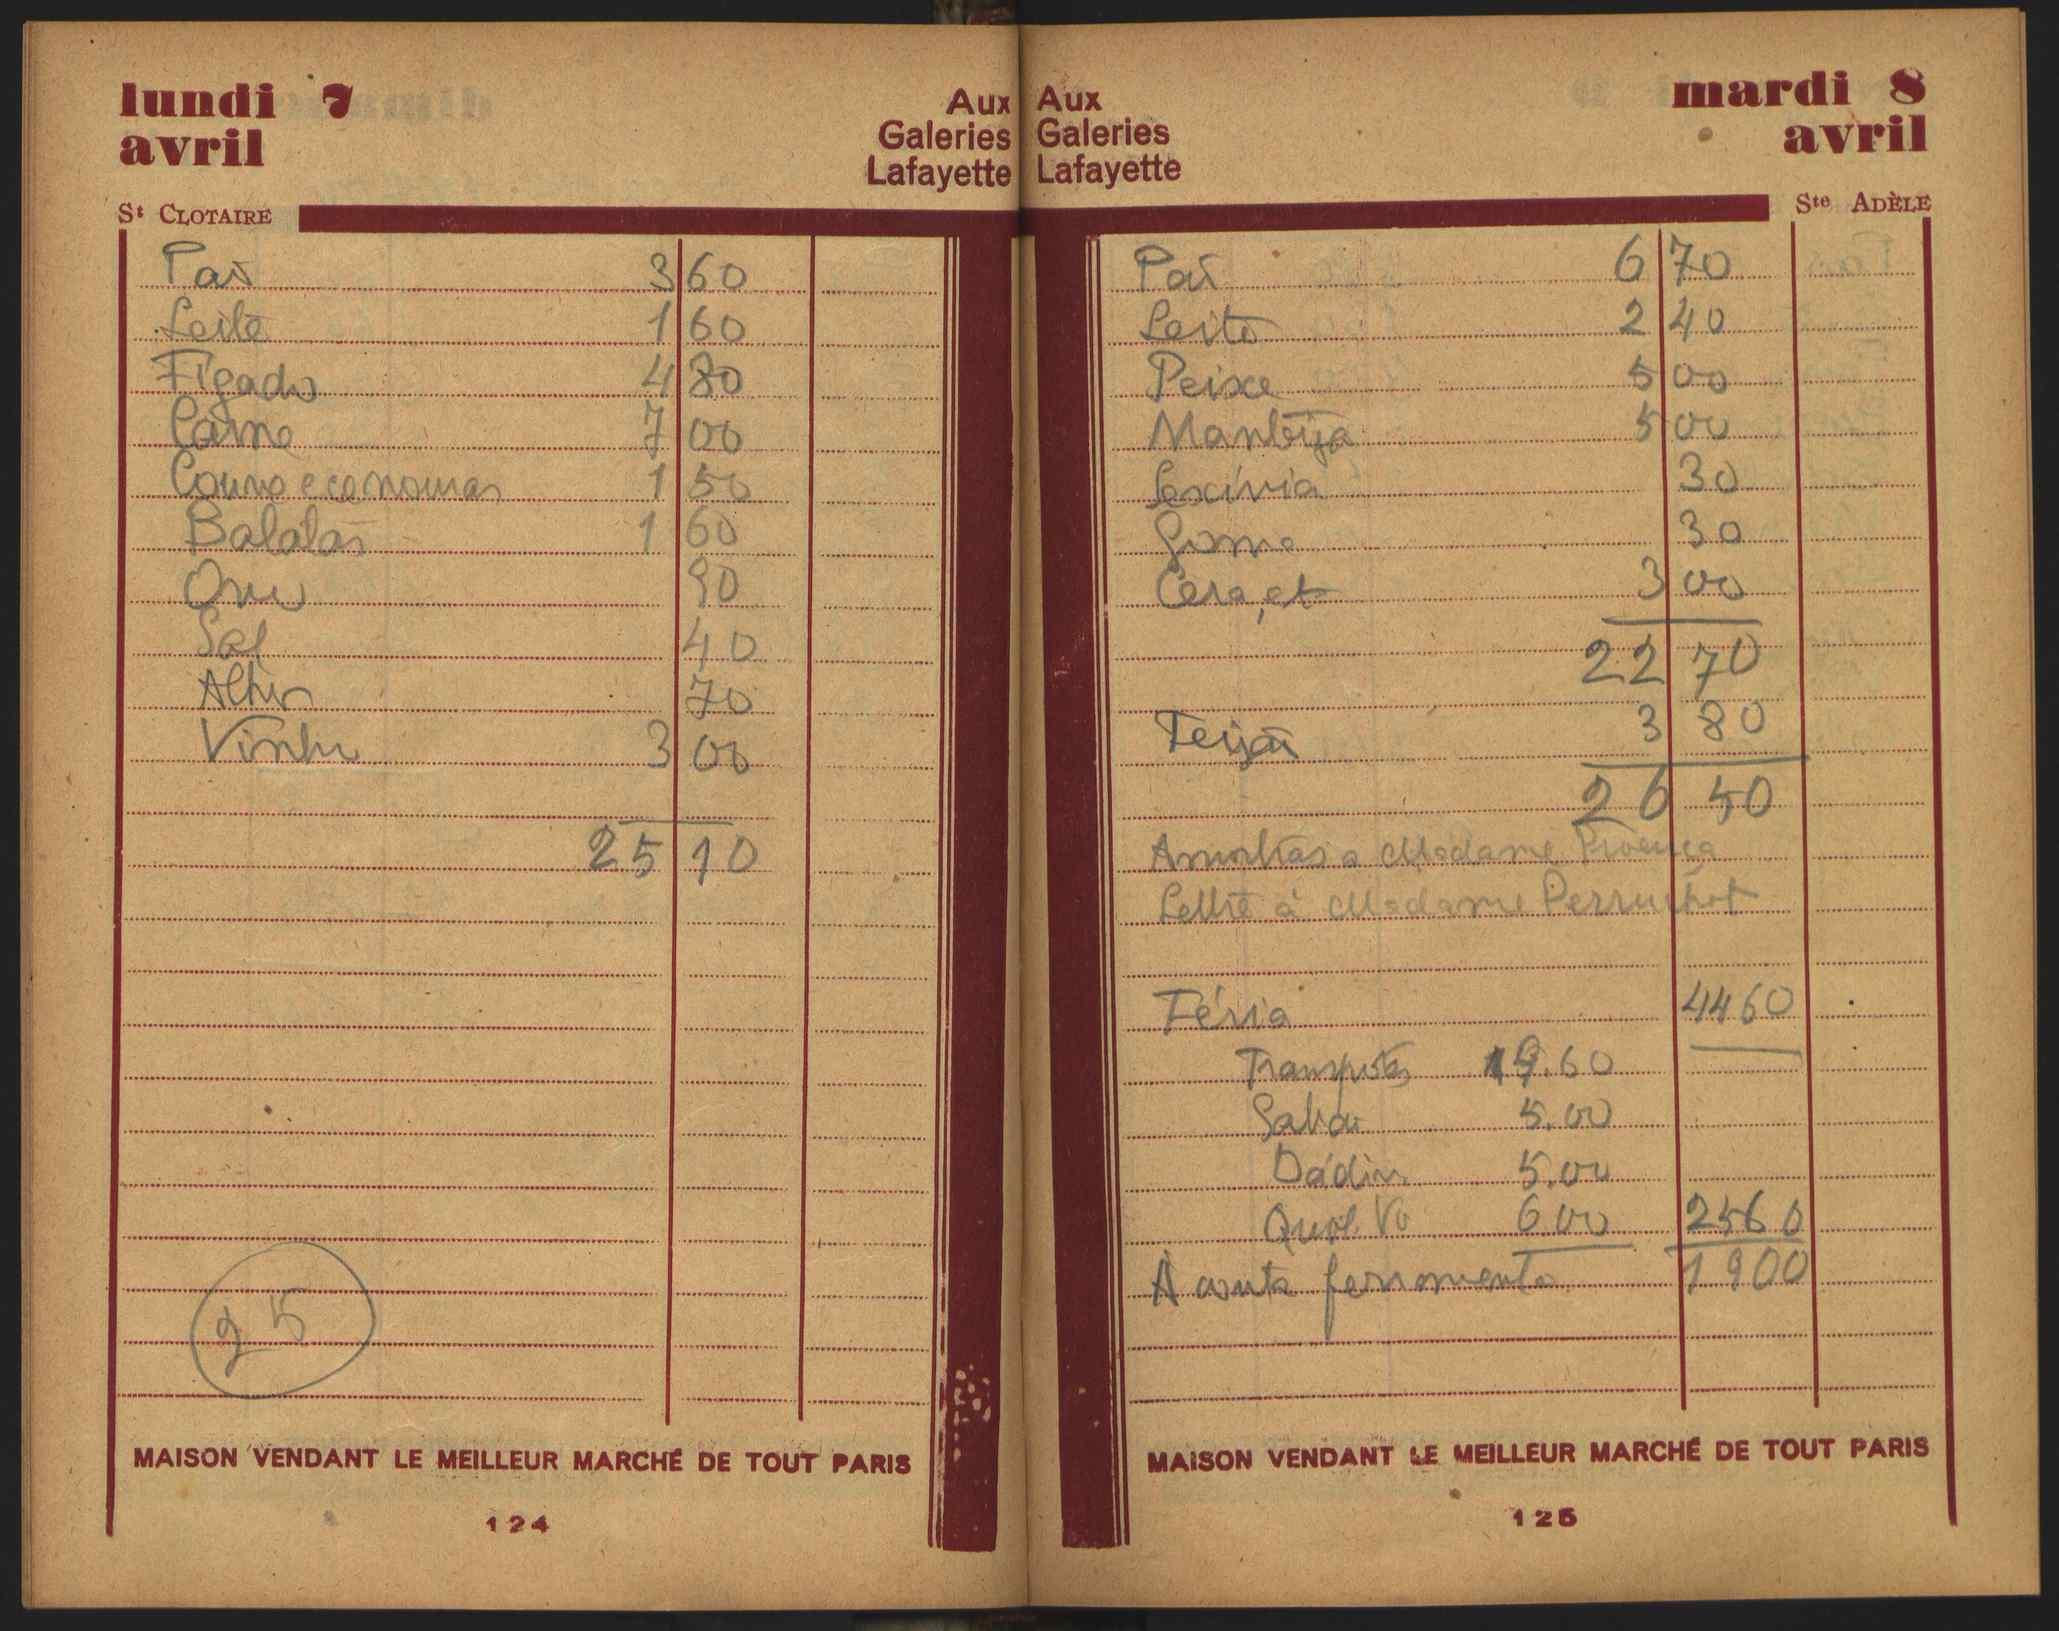 lundi 7
avril
Aux
Galeries
Lafayette
St CLOTAIRE
Pão 3 60
Leite 1 60
Fígado 4 80
Carne 7 00
Couve e cenouras 1 50
Batatas 1 60
Ovo 90
Sal 40
Alhos 70
Vinho 3 00
25 10
25
MAISON VENDANT LE MEILLEUR MARCHÉ DE TOUT PARIS
124
Aux
Galeries
Lafayette
mardi 8
avril
Ste ADÈLE
Pão 6 70
Leite 2 40
Peixe 5 00
Manteiga 5 00
Lexívia 30
Goma 30
Cera, et 3 00
22 70
Feijão 3 80
26 50
Amostras a Madame Proença
Lettre à Madame Perruchot
Féria 4460
Transportes 19.60
Sabão 5.00
Dádiva 5.00
600 2560
À conta ferramenta 1900
MAISON VENDANT LE MEILLEUR MARCHÉ DE TOUT PARIS
125